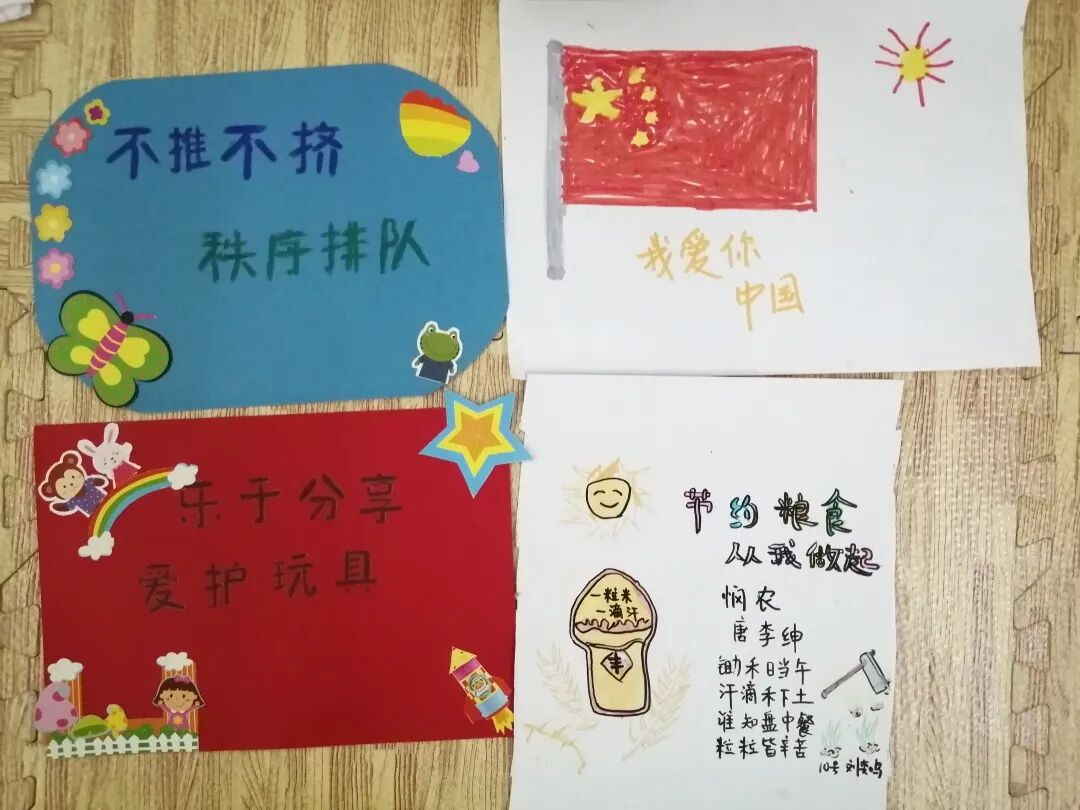 不推不挤
秩序排队
我爱你
中国
乐于分享
爱护玩具
节约粮食
从我做起
一粒米
一滴汗
丰
悯农
唐 李绅
锄禾日当午
汗滴禾下土
谁知盘中餐
粒粒皆辛苦
10号 刘